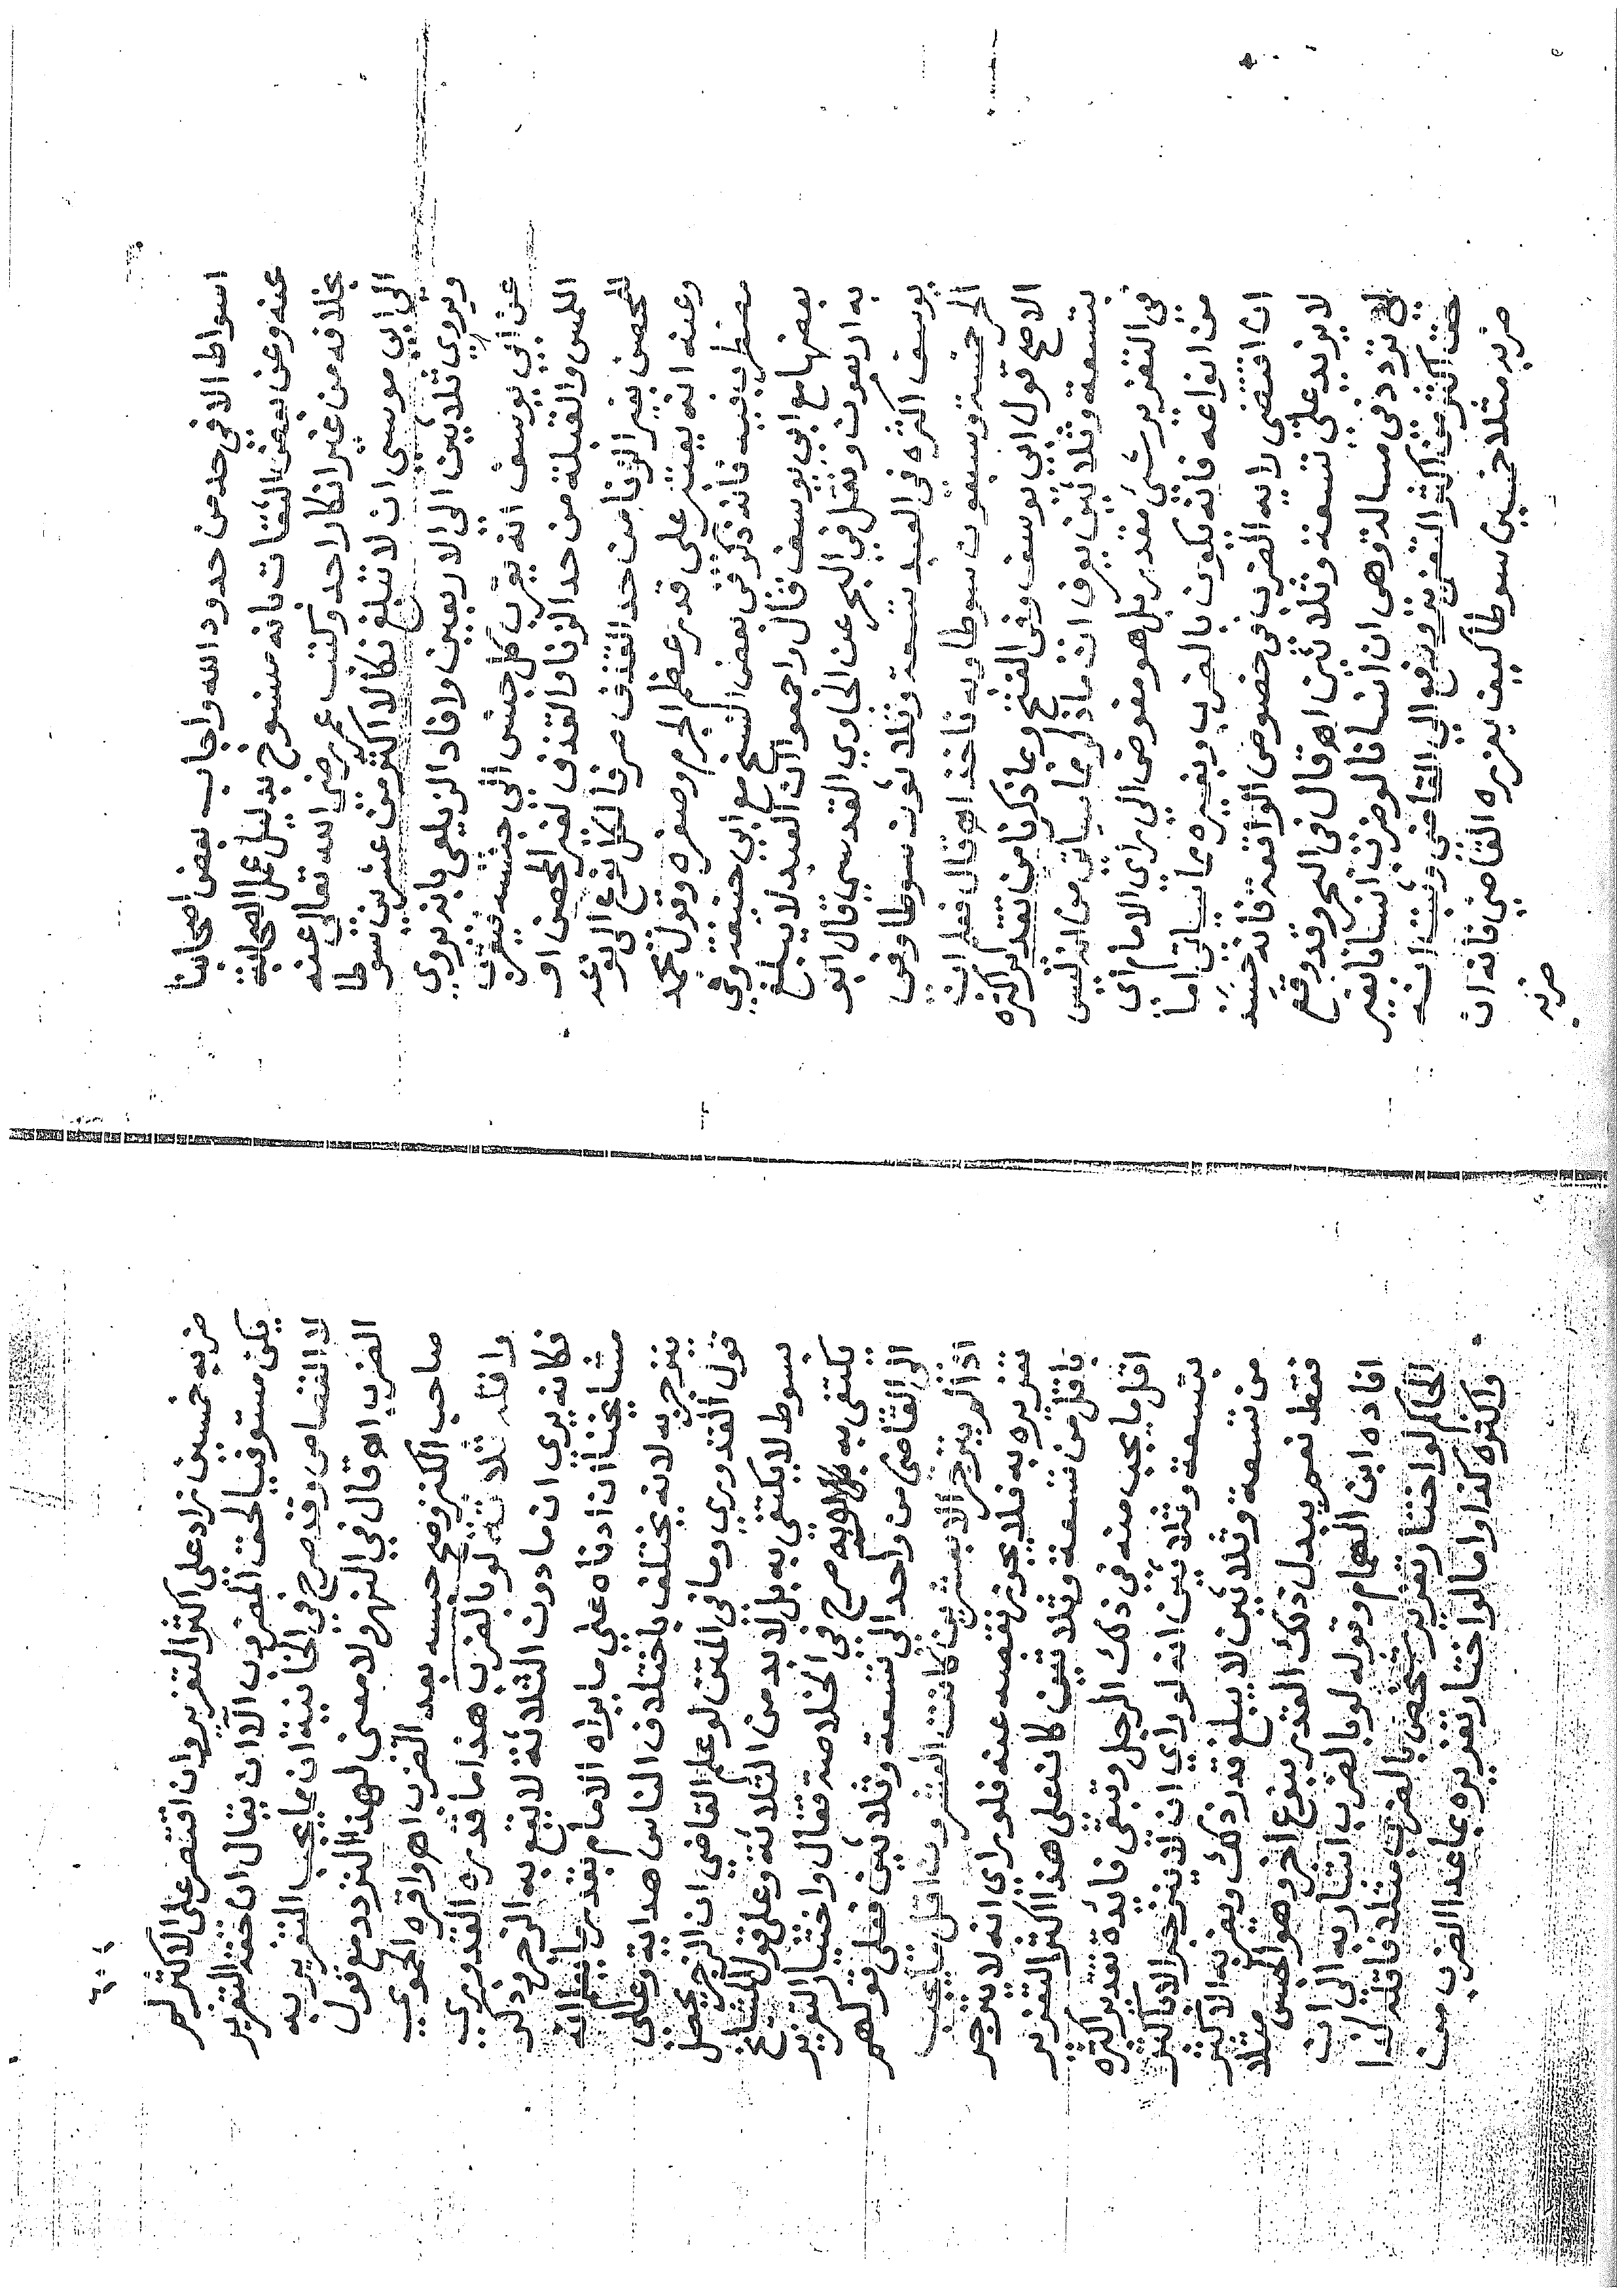 اسواط الا في حد من حدود الله واجاب بعض اصحابنا
عنه وعن بعض الثقات بانه منسوخ بدليل عمل الصحابة
بخلافه من غير انكار احد وكتب عمر رضي الله تعالى عنه
الى ابي موسى ان لا تبلغ نكالا اكثر من عشرين سوطا
ويروى ثلاثين الى الاربعين وافاد الزيلعي بانه روي
عن ابي يوسف انه يقرب كل جنس الى جنسه فيقرب
اللمس والقبلة من حد الزنا والقذف لغير المحصن او
للمحصن بغير الزنا من حد القذف صرفا لكل نوع الى نوعه
وعنه انه يعتبر على قدر عظم الجرم وصغره وقول محمد
مضطرب فيه فانه ذكر في بعض النسخ مع ابي حنيفة وفي
بعضها مع ابي يوسف قال واجمعوا ان العبد لا يبلغ
به اربعون ونقل في البحر عن الحاوي القدسي قال ابو
يوسف اكثره في العبد تسعة وثلاثون سوطا وفي
الحر خمسة وسبعون سوطا وبه ناخذ اه قال فعلم ان
الاصح قول ابي يوسف وفي الفتح وما ذكرنا من تقدير اكثره
بتسعة وثلاثين يعرف ان ما ذكر مما سياتي من انه ليس
في التعزير شيء مقدر بل هو مفوض الى راي الامام اي
من انواعه فانه يكون بالضرب وبغيره مما سياتي اما
ان اقتضى رايه الضرب في خصوص الواقعة فانه حينئذ
لا يزيد على تسعة وثلاثين اه قال في البحر وقد وقع
لي تردد في مسالة وهي ان انسانا لو ضرب انسانا بغير
حق اكثر من اكثر التعزير ورفع الى القاضي وثبت انه
ضربه مثلا خمسين سوطا كيف يعزره القاضي فانه ان
ضربه
ضربه خمسين زاد على اكثر التعزير وان اقتصر على الاكثر لم
يكن مستوفيا لحق المضروب الا ان يقال ان حقه التعزير
لا القصاص وقد صرح في الخانية ان مما يجب التعزير به
الضرب اه قال في النهر ولا معنى لهذا التردد مع قول
صاحب الكنز وصح حبسه بعد الضرب اه واقره الحموي
واقله ثلاثة لو بالضرب هذا ما قدره القدوري
فكانه يرى ان ما دون الثلاثة لا يقع به الزجر وذكر
مشايخنا ان ادناه على ما يراه الامام بقدر ما يعلم انه
ينزجر به لانه يختلف باختلاف الناس هداية وعلى
قول القدوري وما في المتن لو علم القاضي ان الزجر يحصل
بسوط لا يكتفى به بل لا بد من الثلاثة وعلى قول المشايخ
يكتفى به بل وبه صرح في الخلاصة فقال واختيار التعزير
الى القاضي من واحد الى تسعة وثلاثين فعلى قولهم
اذا لم ينزجر الا بعشرين كانت العشرون اقل ما يجب
تعزيره به فلا يجوز نقصه عنه فلو راى انه لا ينزجر
باقل من تسعة وثلاثين كان على هذا اكثر التعزير
اقل ما يجب منه في ذلك الرجل وتبقى فايدة تقدير اكثره
بتسعة وثلاثين انه لو راى ان لا ينزجر الا باكثر
من تسعة وثلاثين لا يبلغ قدر ذلك ويضربه الاكثر
فقط نعم يبدل ذلك القدر بنوع اخر وهو الحبس مثلا
افاده ابن الهمام وقوله لو بالضرب اشار به الى ان
الحاكم لو اختار تعزير شخص بالضرب مثلا فاقله كذا
واكثره كذا واما لو اختار تعزيره بما عدا الضرب من